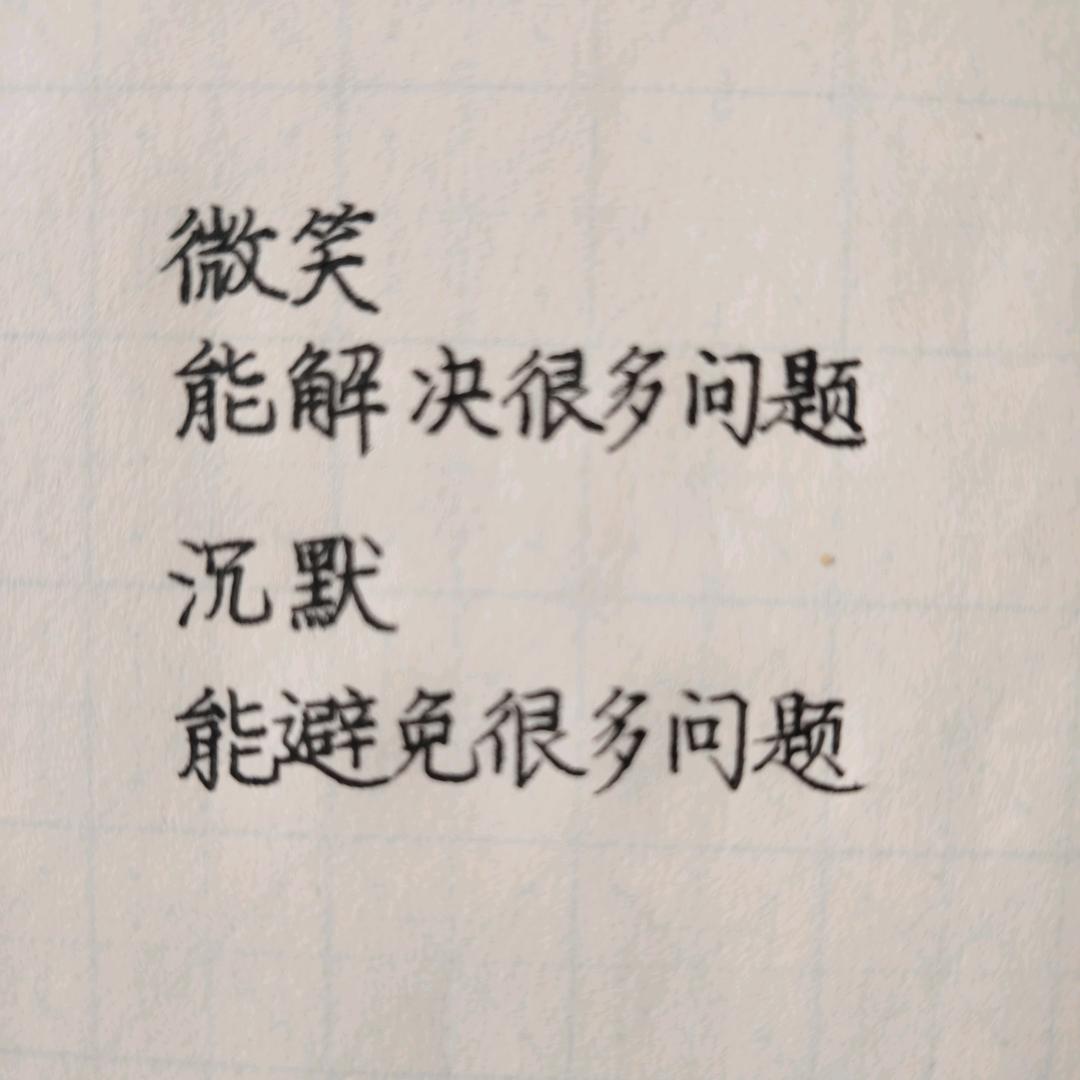 微笑
能解决很多问题
沉默
能避免很多问题